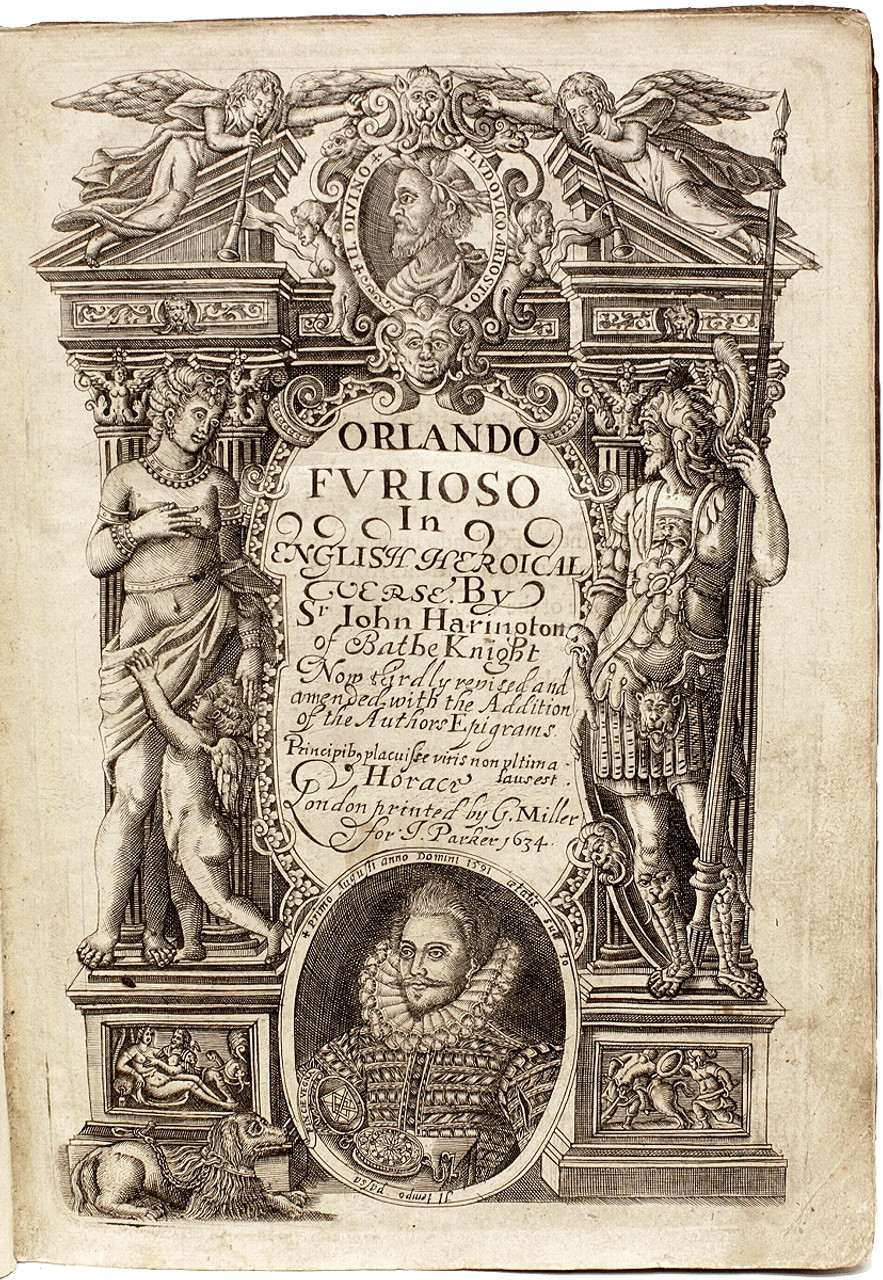 IL DIVINO * LVDOVICO ARIOSTO *
ORLANDO
FVRIOSO
In
ENGLISH HEROICAL
VERSE. By
Sr Iohn Harington
of Bathe Knight
Now thirdly revised and
amended with the Addition
of the Authors Epigrams.
Principibꝫ placuisse viris non vltima
laus est.
Horace
London printed by G. Miller
for J. Parker 1634.
* primo Augusti anno Domini 1591 ætatis suæ 30
Il tempo passa